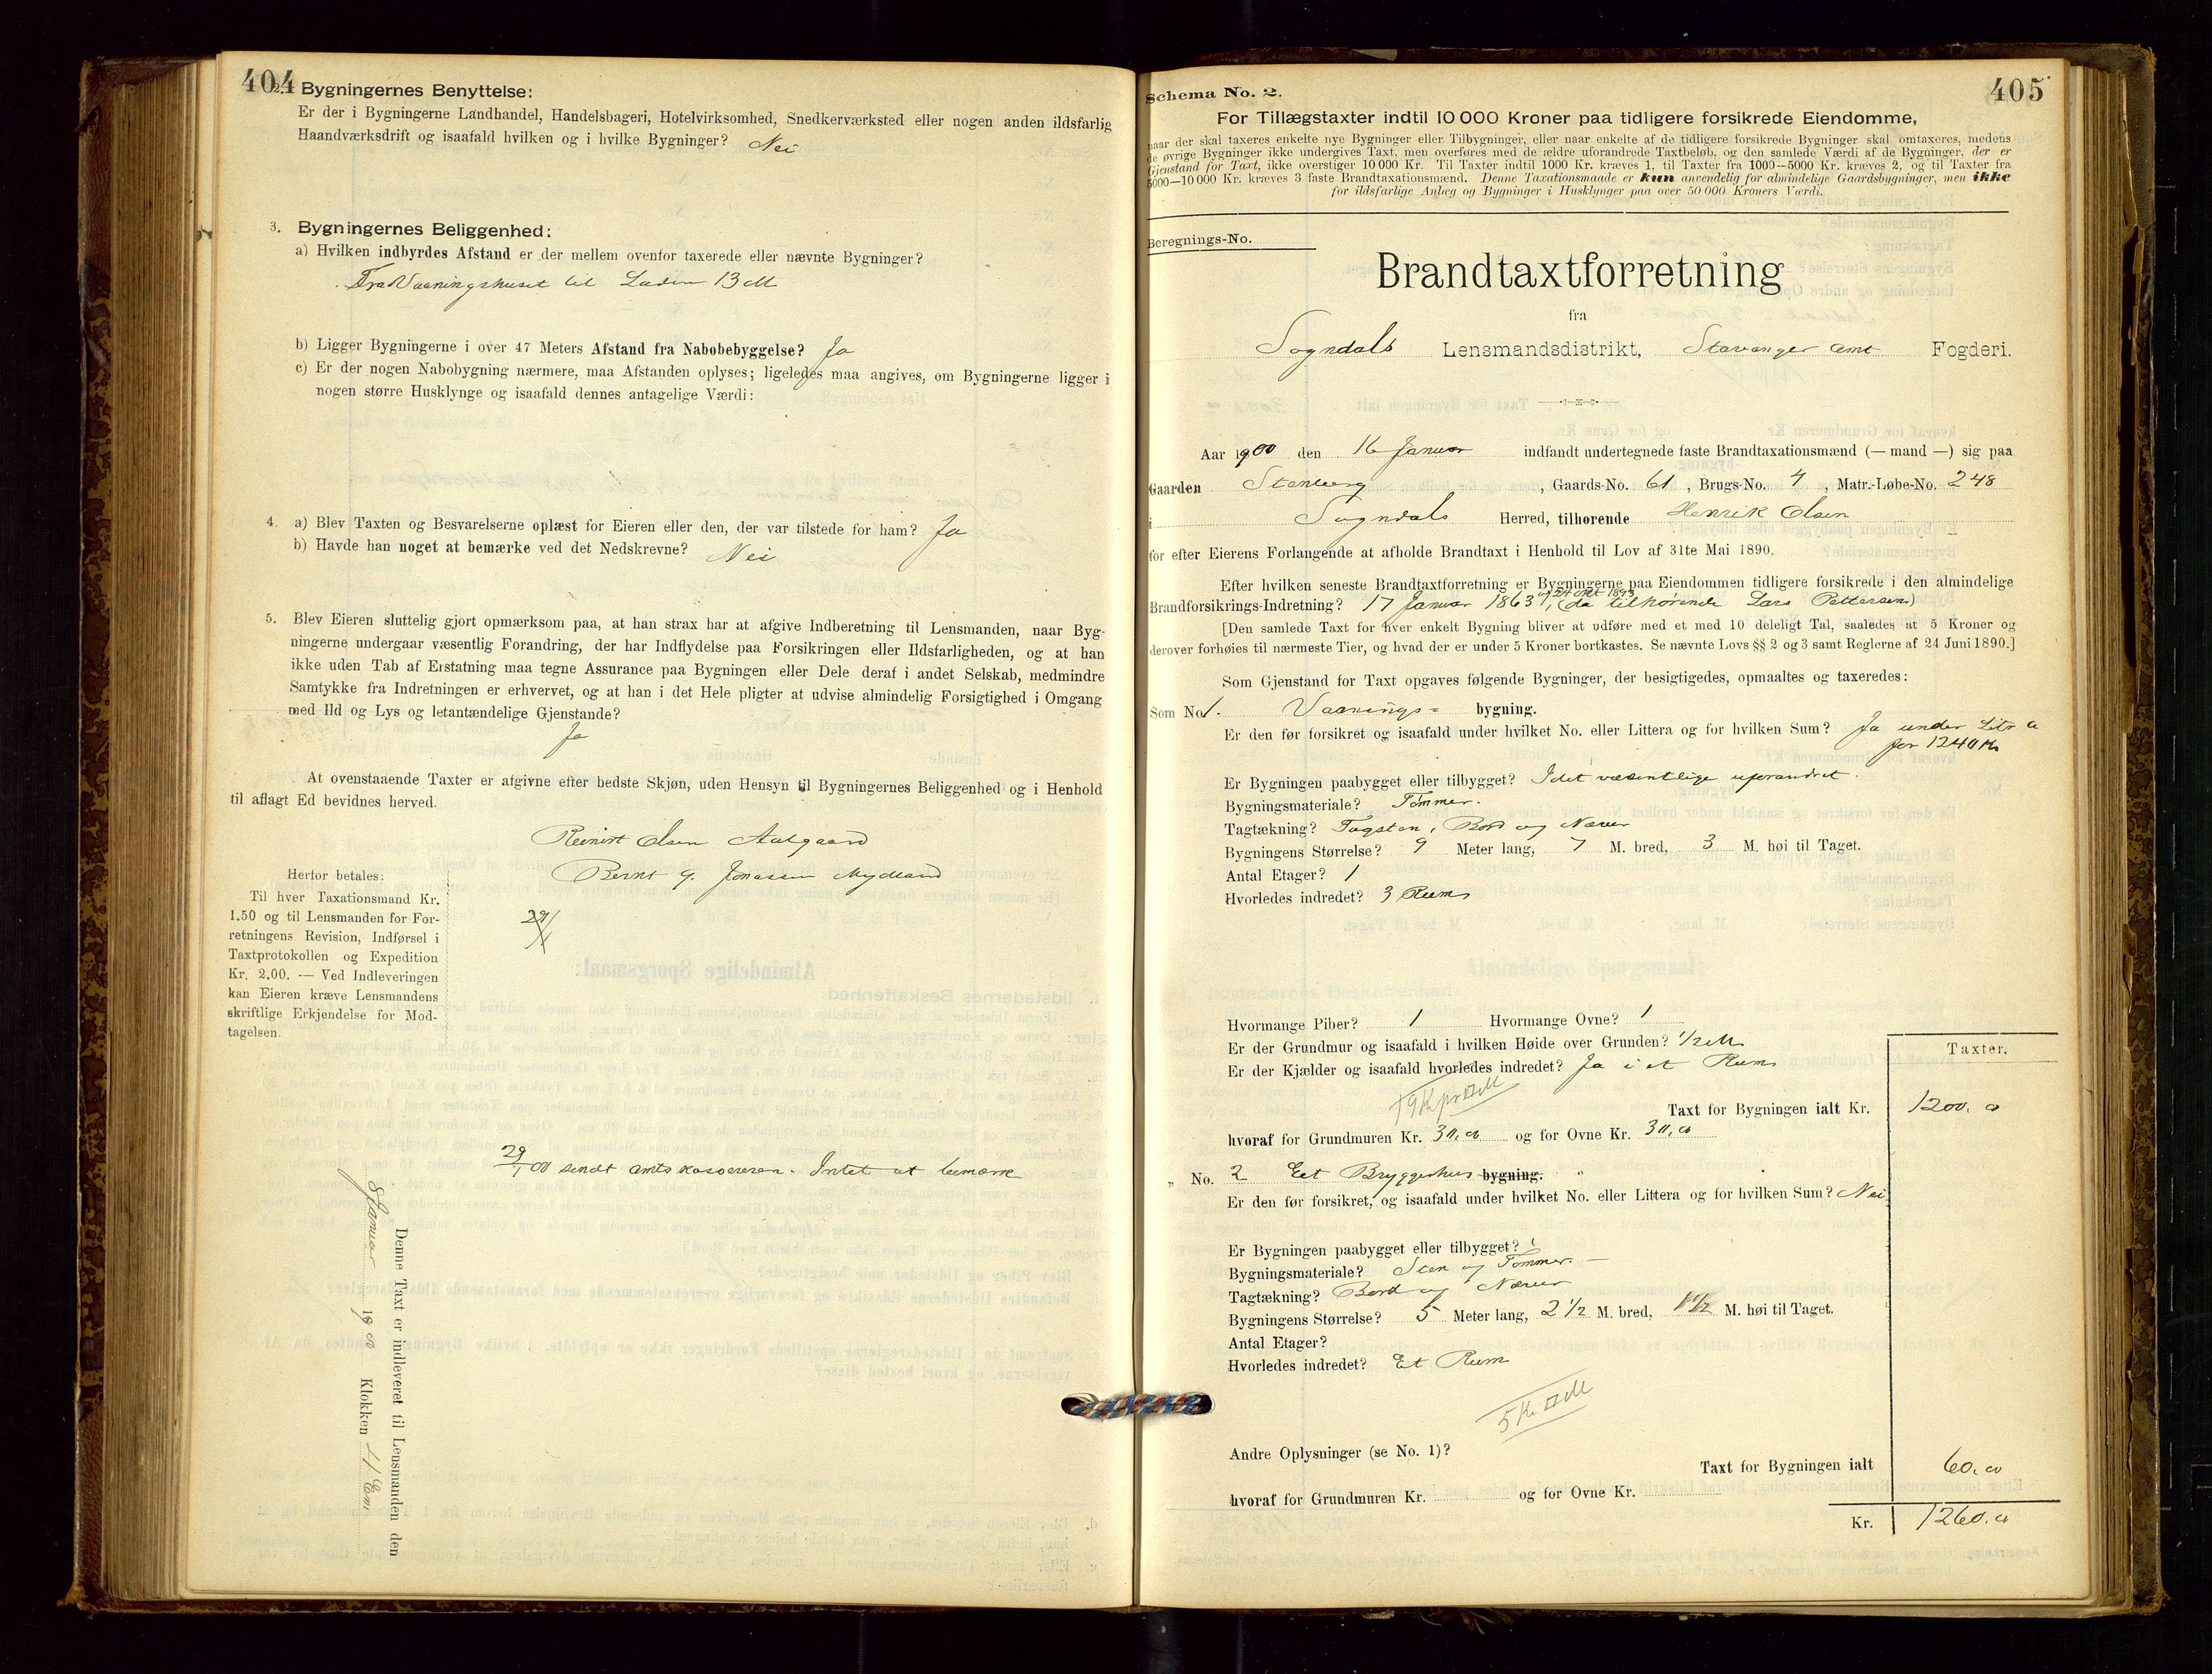 404
2. Bygningernes Benyttelse:
Er der i Bygningerne Landhandel, Handelsbageri, Hotelvirksomhed, Snedkerværksted eller nogen anden ildsfarlig
Haandværksdrift og isaafald hvilken og i hvilke Bygninger? Nei
3. Bygningernes Beliggenhed:
a) Hvilken indbyrdes Afstand er der mellem ovenfor taxerede eller nævnte Bygninger?
Fra Vaaningshuset til Laden 13 M
b) Ligger Bygningerne i over 47 Meters Afstand fra Nabobebyggelse? Ja
c) Er der nogen Nabobygning nærmere, maa Afstanden oplyses; ligeledes maa angives, om Bygningerne ligger i
nogen større Husklynge og isaafald dennes antagelige Værdi:
4. a) Blev Taxten og Besvarelserne oplæst for Eieren eller den, der var tilstede for ham? Ja
b) Havde han noget at bemærke ved det Nedskrevne? Nei
5. Blev Eieren sluttelig gjort opmærksom paa, at han strax har at afgive Indberetning til Lensmanden, naar Byg-
ningerne undergaar væsentlig Forandring, der har Indflydelse paa Forsikringen eller Ildsfarligheden, og at han
ikke uden Tab af Erstatning maa tegne Assurance paa Bygningen eller Dele deraf i andet Selskab, medmindre
Samtykke fra Indretningen er erhvervet, og at han i det Hele pligter at udvise almindelig Forsigtighed i Omgang
med Ild og Lys og letantændelige Gjenstande?
Ja
At ovenstaaende Taxter er afgivne efter bedste Skjøn, uden Hensyn til Bygningernes Beliggenhed og i Henhold
til aflagt Ed bevidnes herved.
Reinert Olsen Aalgaard
Bernt G. Jonassen Mydland
Herfor betales:
Til hver Taxationsmand Kr.
1.50 og til Lensmanden for For-
retningens Revision, Indførsel i
Taxtprotokollen og Expedition
Kr. 2.00. — Ved Indleveringen
kan Eieren kræve Lensmandens
skriftlige Erkjendelse for Mod-
tagelsen.
29/1 00 sendt amtskassereren. Intet at bemærk
Denne Taxt er indleveret til Lensmanden den
Januar 1900 Klokken 4 Em
405
Schema No. 2.
For Tillægstaxter indtil 10 000 Kroner paa tidligere forsikrede Eiendomme,
naar der skal taxeres enkelte nye Bygninger eller Tilbygninger, eller naar enkelte af de tidligere forsikrede Bygninger skal omtaxeres, medens
de øvrige Bygninger ikke undergives Taxt, men overføres med de ældre uforandrede Taxtbeløb, og den samlede Værdi af de Bygninger, der er
Gjenstand for Taxt, ikke overstiger 10 000 Kr. Til Taxter indtil 1000 Kr. kræves 1, til Taxter fra 1000—5000 Kr. kræves 2, og til Taxter fra
5000—10 000 Kr. kræves 3 faste Brandtaxationsmænd. Denne Taxationsmaade er kun anvendelig for almindelige Gaardsbygninger, men ikke
for ildsfarlige Anlæg og Bygninger i Husklynger paa over 50 000 Kroners Værdi.
Beregnings-No.
Brandtaxtforretning
fra
Sogndals Lensmandsdistrikt, Stavanger amt Fogderi.
Aar 1900 den 16 Januar indfandt undertegnede faste Brandtaxationsmænd (— mand —) sig paa
Gaarden Stenberg, Gaards-No. 61, Brugs-No. 4, Matr.-Løbe-No. 248
i Sogndals Herred, tilhørende Henrik Olsen
for efter Eierens Forlangende at afholde Brandtaxt i Henhold til Lov af 31te Mai 1890.
Efter hvilken seneste Brandtaxtforretning er Bygningerne paa Eiendommen tidligere forsikrede i den almindelige
Brandforsikrings-Indretning? 17 Januar 1863 og 24 Okt 1893 (da tilhørende Lars Pettersen)
[Den samlede Taxt for hver enkelt Bygning bliver at udføre med et med 10 deleligt Tal, saaledes at 5 Kroner og
derover forhøies til nærmeste Tier, og hvad der er under 5 Kroner bortkastes. Se nævnte Lovs §§ 2 og 3 samt Reglerne af 24 Juni 1890.]
Som Gjenstand for Taxt opgaves følgende Bygninger, der besigtigedes, opmaaltes og taxeredes:
Som No. 1. Vaanings= bygning.
Er den før forsikret og isaafald under hvilket No. eller Littera og for hvilken Sum? Ja under Litr a
for 1240 Kr
Er Bygningen paabygget eller tilbygget? I det væsentlige uforandret.
Bygningsmateriale? Tømmer.
Tagtækning? Tagsten, Bord og Næver
Bygningens Størrelse? 9 Meter lang, 7 M. bred, 3 M. høi til Taget.
Antal Etager? 1
Hvorledes indredet? 3 Rum
Hvormange Piber? 1 Hvormange Ovne? 1
Er der Grundmur og isaafald i hvilken Høide over Grunden? 1/2 M
Er der Kjælder og isaafald hvorledes indredet? Ja i et Rum
Taxter.
19 Kr pr □ M
Taxt for Bygningen ialt Kr. 1200.00
hvoraf for Grundmuren Kr. 30,00 og for Ovne Kr. 30,00
" No. 2 Eet Bryggerhus bygning.
Er den før forsikret, og isaafald under hvilket No. eller Littera og for hvilken Sum? Nei
Er Bygningen paabygget eller tilbygget?
Bygningsmateriale? Sten og Tømmer.
Tagtækning? Bord og Næver
Bygningens Størrelse? 5 Meter lang, 2 1/2 M. bred, 1 1/2 M. høi til Taget.
Antal Etager?
Hvorledes indredet? Et Rum
5 Kr □ M
Andre Oplysninger (se No. 1)?
Taxt for Bygningen ialt 60.00
hvoraf for Grundmuren Kr. og for Ovne Kr.
Kr. 1260.00